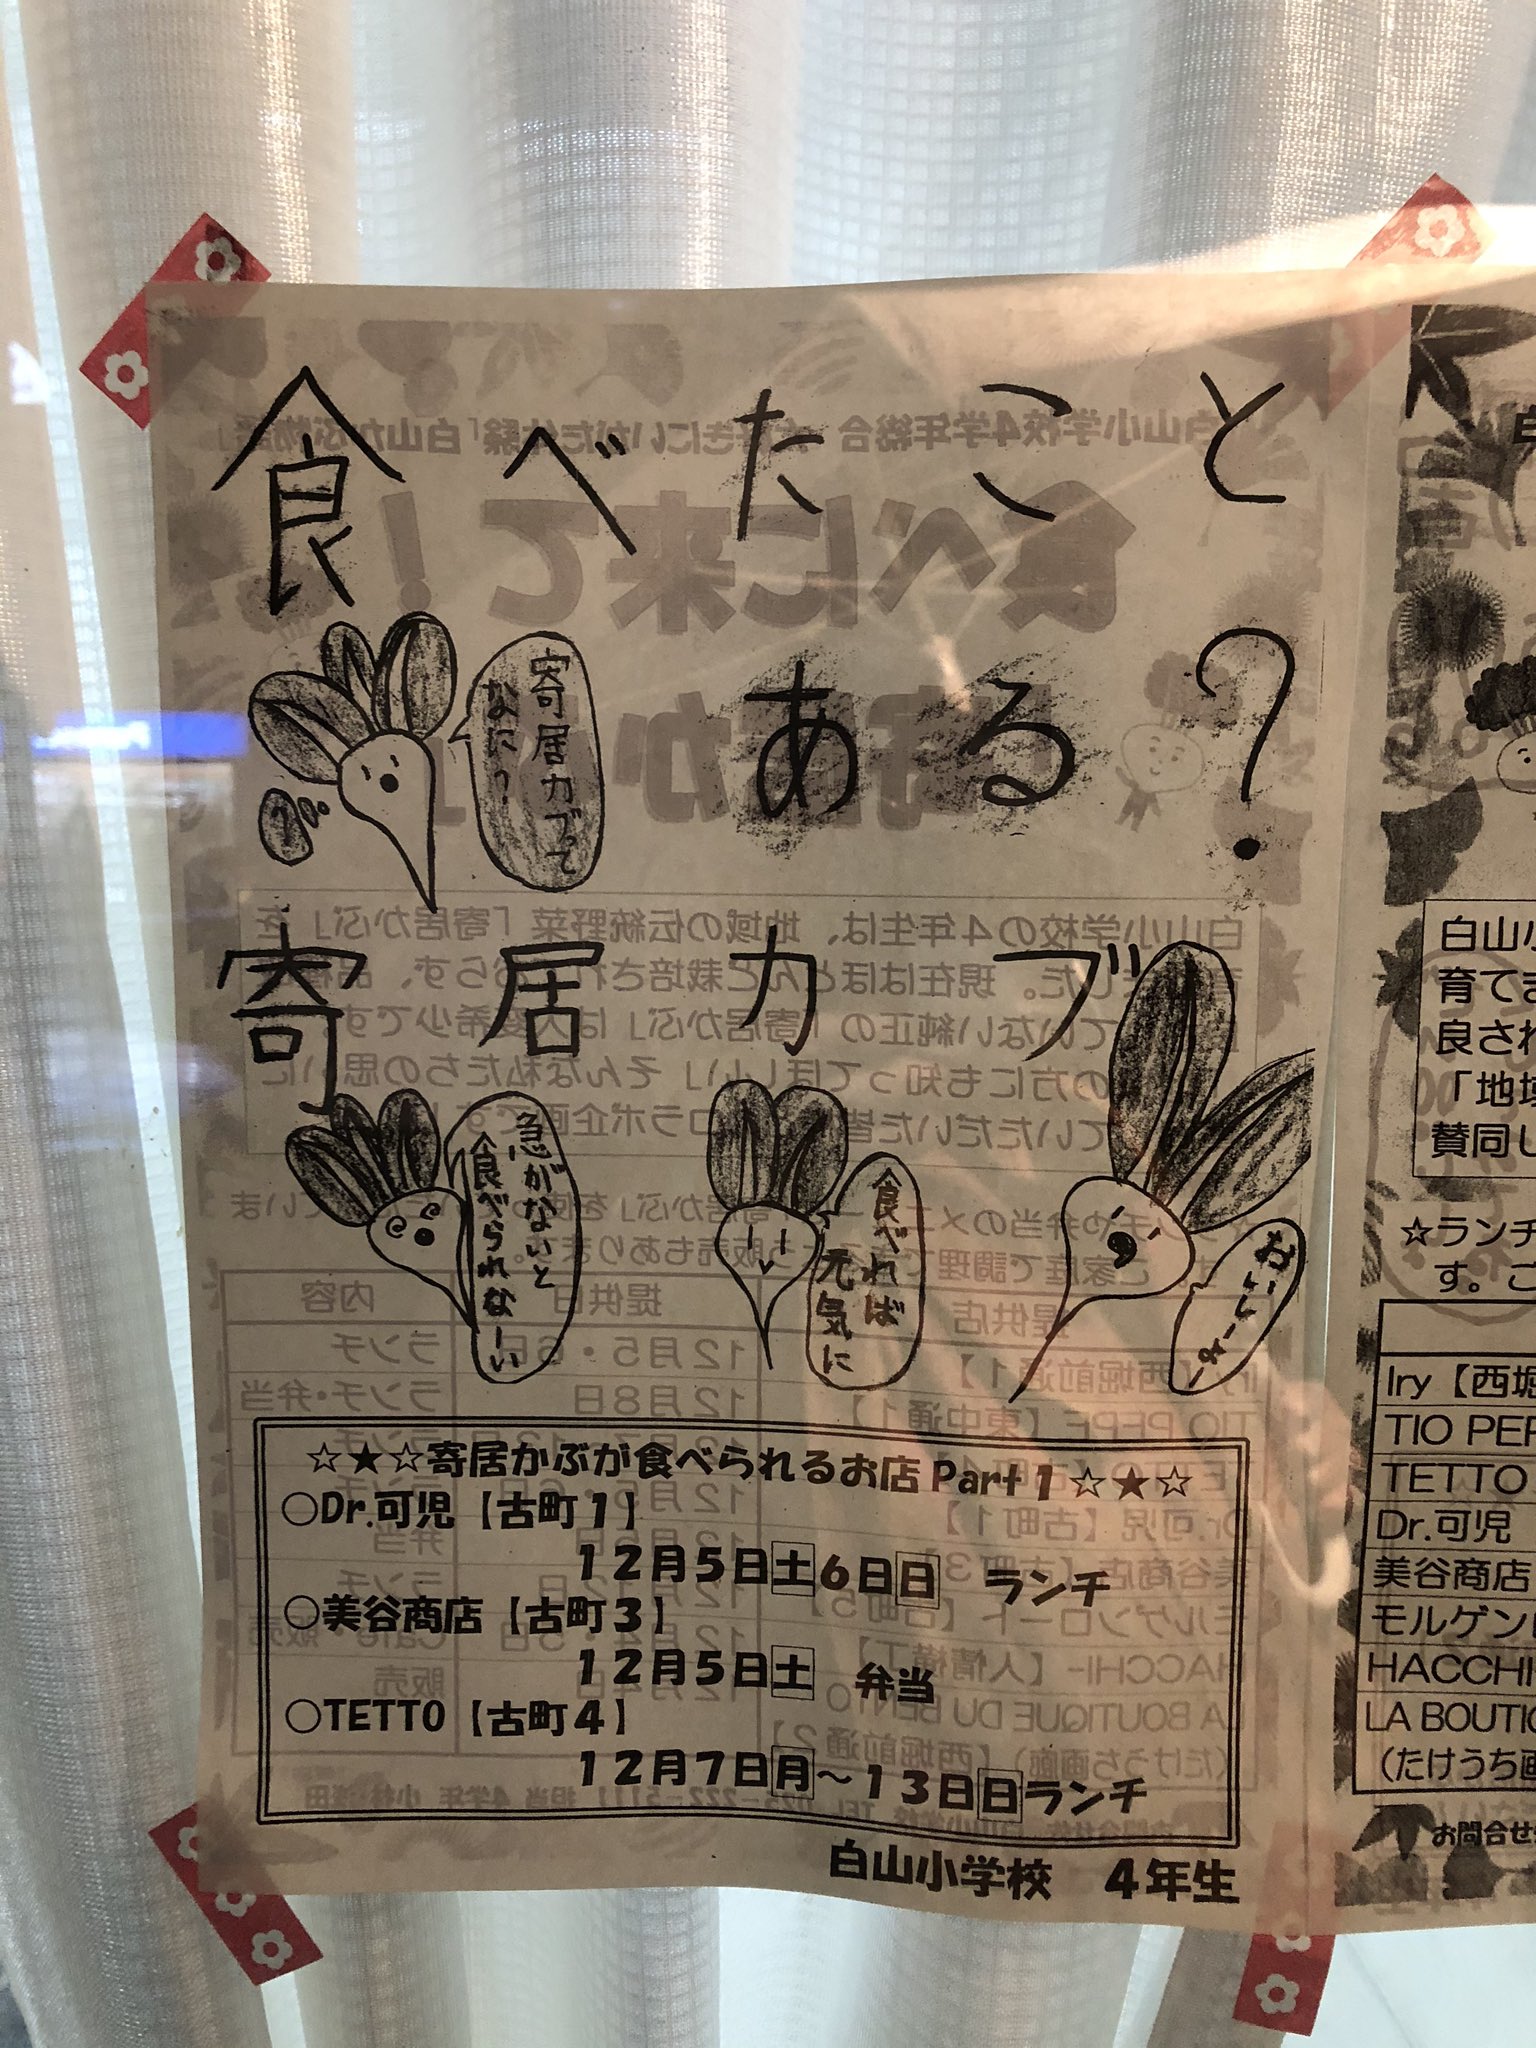 食べたこと
ある?
寄居カブって
なに?
寄居カブ
急がないと
食べられなーい
食べれば
元気に
おいしーよー
☆★☆寄居かぶが食べられるお店 Part 1☆★☆
○Dr.可児【古町1】
12月5日土6日日 ランチ
○美谷商店【古町3】
12月5日土 弁当
○TETTO【古町4】
12月7日月~13日日ランチ
白山小学校 4年生
白山小
育てま
良され
「地域
賛同し
☆ランチ
す。ご
Iry【西堀
TIO PEP
TETTO
Dr.可児
美谷商店
モルゲン
HACCHI
LA BOUTIQ
(たけうち画
お問合せ